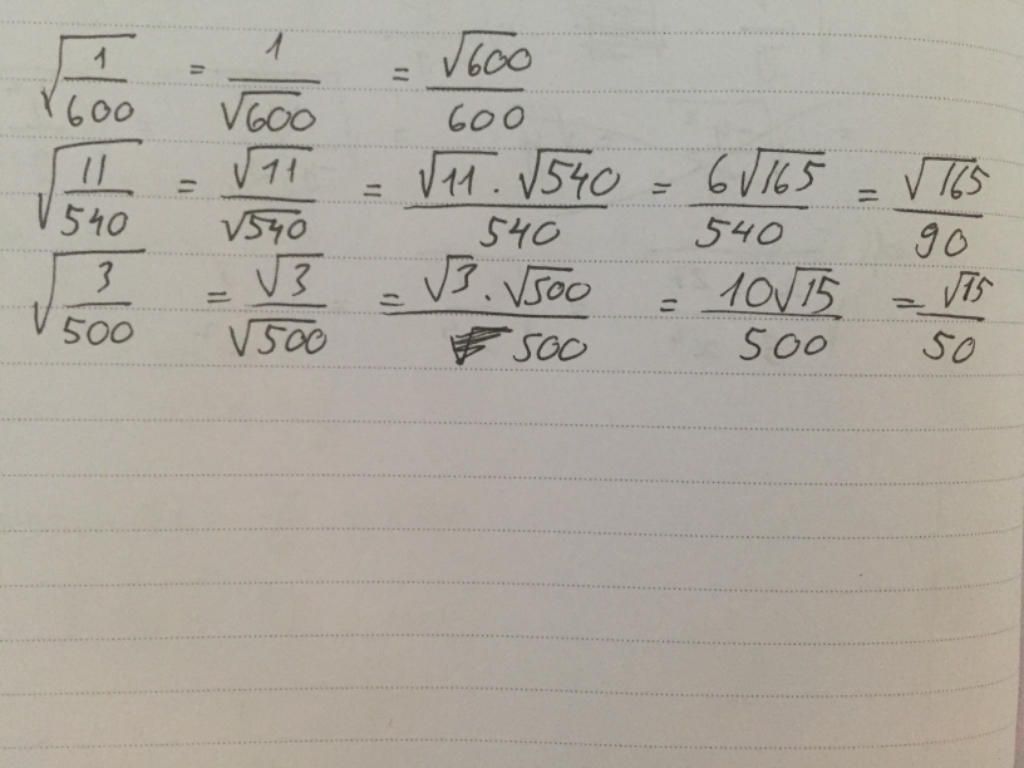 √(1/600) = 1/√600 = √600/600
√(11/540) = √11/√540 = √11 . √540/540 = 6√165/540 = √165/90
√(3/500) = √3/√500 = √3 . √500/500 = 10√15/500 = √15/50